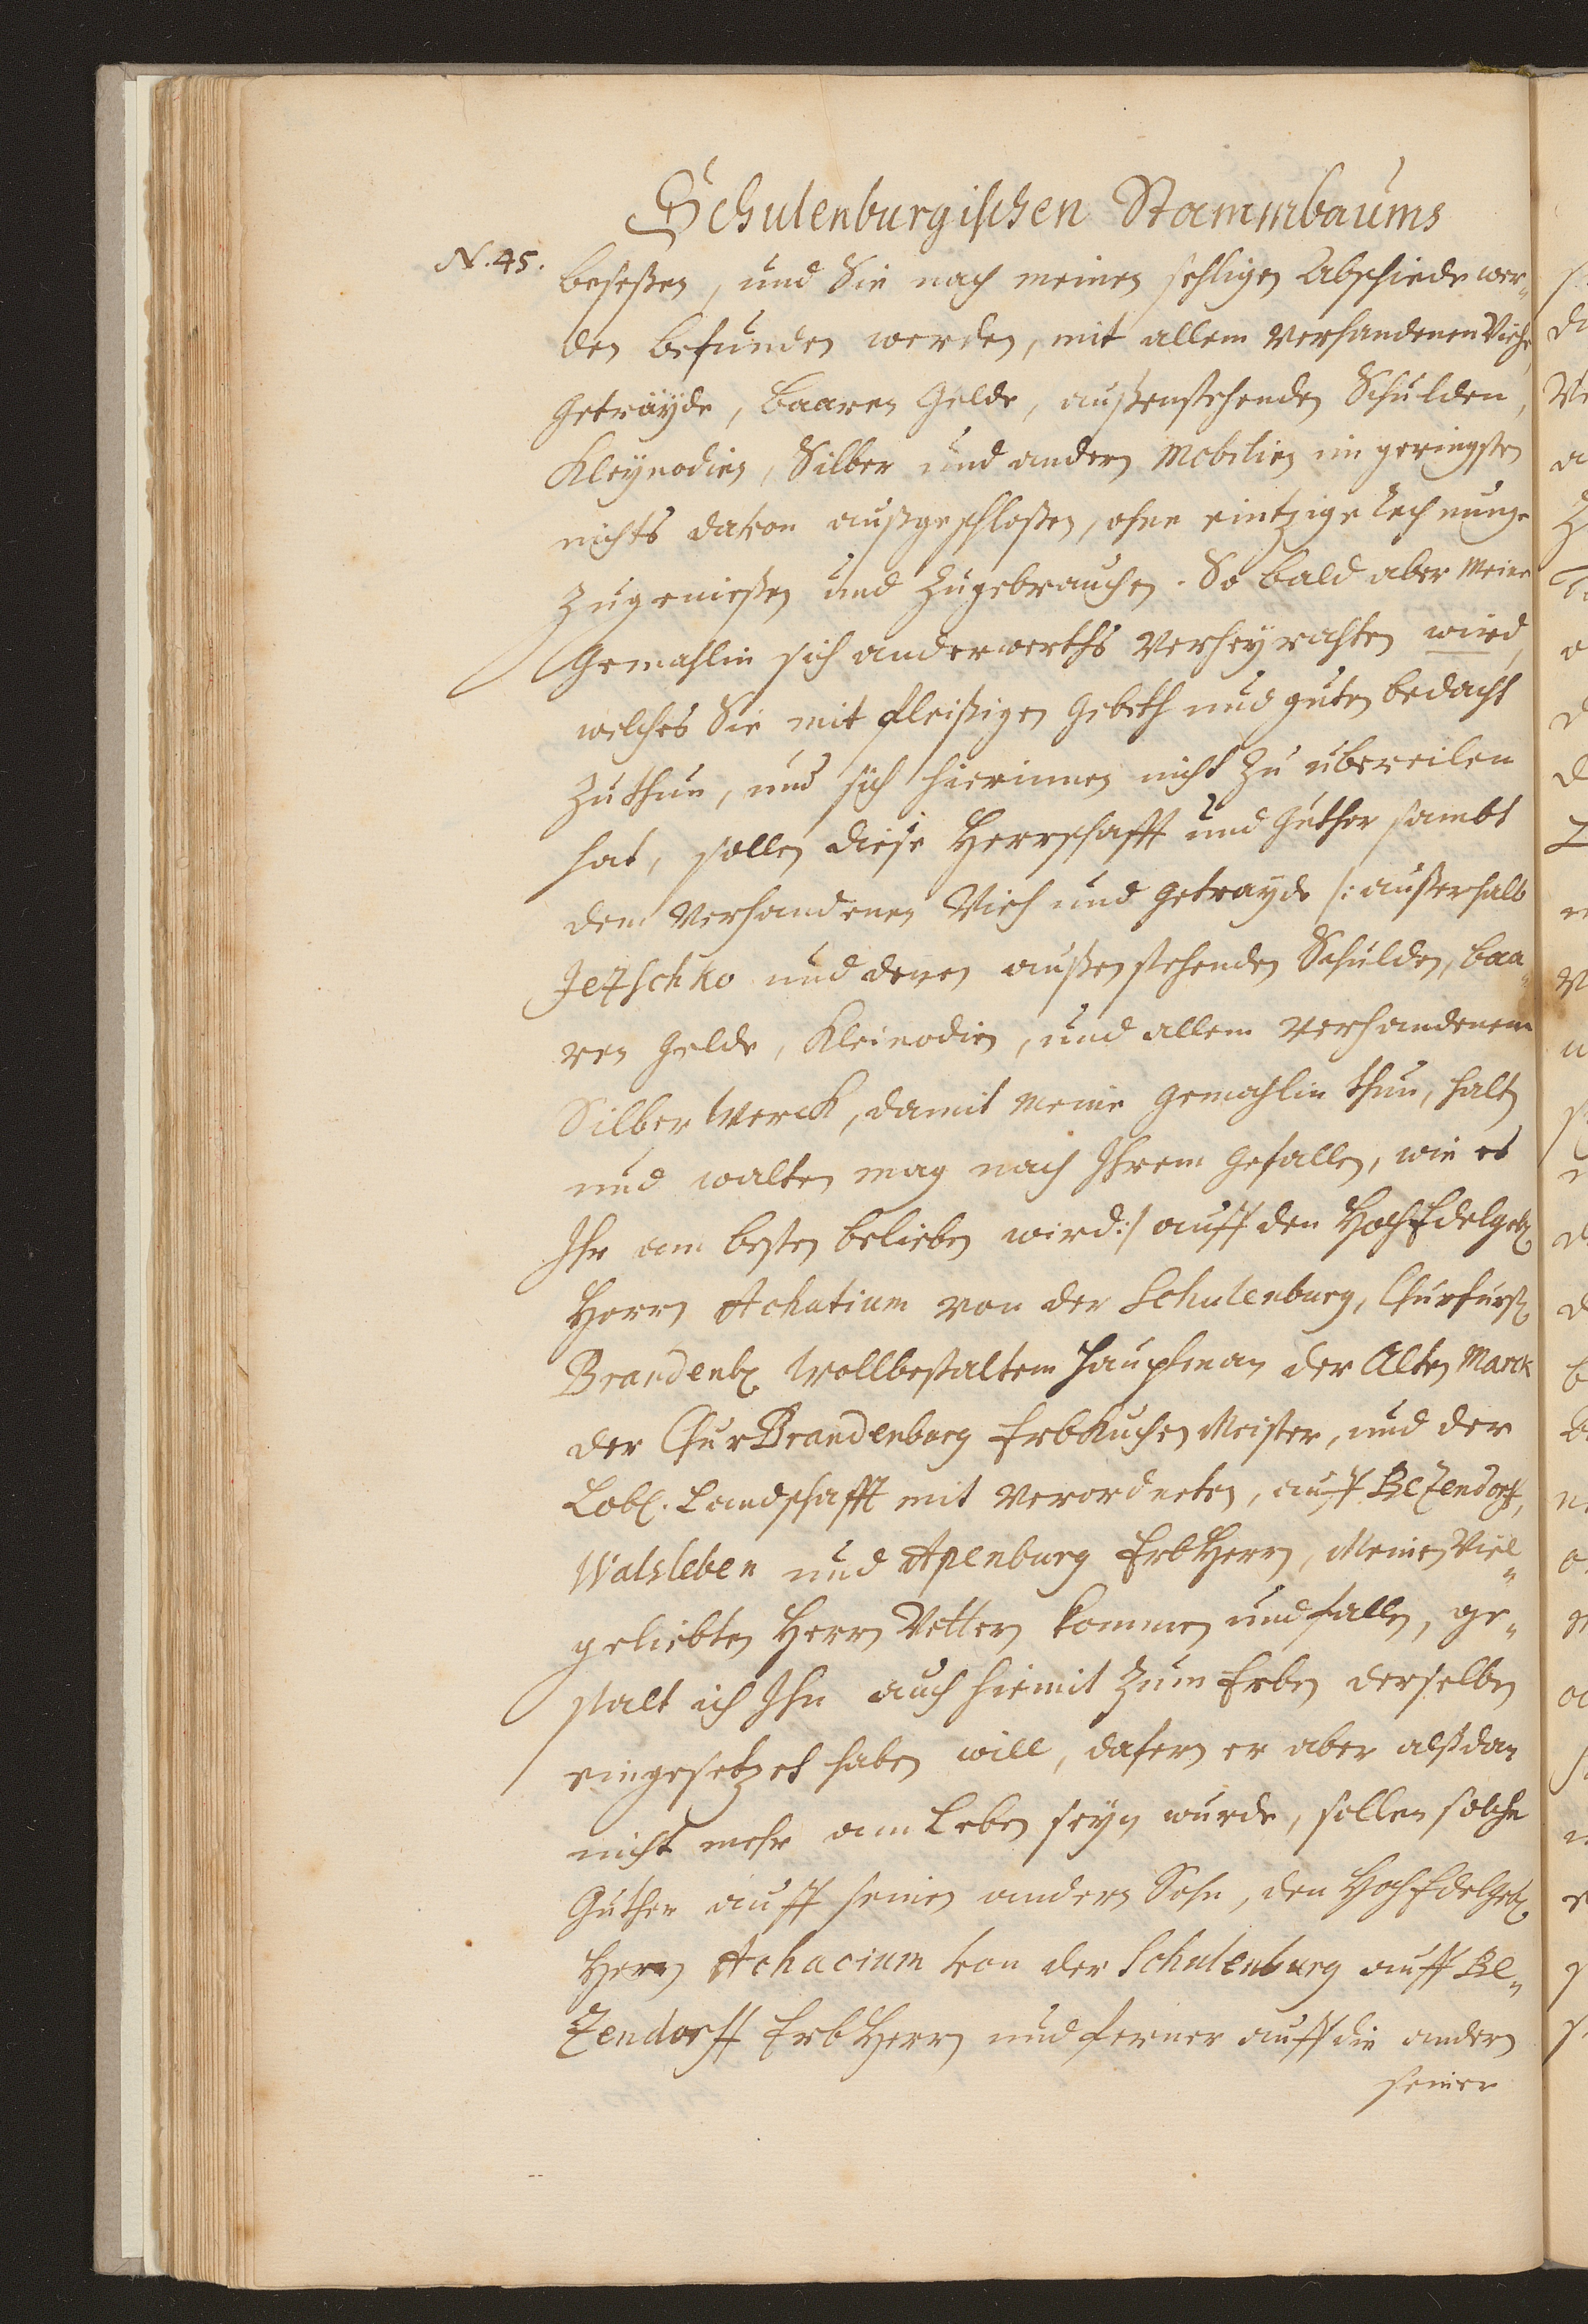 Schulenburgischen Stammbaums
N. 45.
beseßen, und Sie nach meinen sehligen Abschiede wer„
den befunden werden, mit allem verhandenen Viehe,
Getrayde, baaren Gelde, außenstehenden Schulden,
Kleynodien, Silber und andern Mobilien im geringsten
nichts davon außgeschloßen, ohne eintzige Rechnunge
zugenießen und zugebrauchen. So bald aber meine
Gemahlin sich anderwerths verheyrahten wird,
welches Sie mit fleißigen Gebeth und guten bedacht
zuthun, und sich hierinnen nicht zu ubereilen
hat, sollen diese Herrschafft und Güther sambt
dem verhandenen Vieh und Getrayde /: außerhalb
Jetschko und denen außenstehenden Schulden, baa„
ren Gelde, Kleinodien, und allem verhandenem
Silber Werck, damit meine Gemahlin thun, halten
und walten mag nach Ihrem Gefallen, wie es
Ihr am besten belieben wird :/ auff den HochEdelgeb.
Herrn Achatium von der Schulenburg, Churfürstl.
Brandenb. Wollbestaltem Hauptman der Alten Marck
der ChurBrandenburg ErbKuchenMeister, und der
Löbl. Landschafft mit verordneten, auff Bezendorff,
Walsleben und Apenburg ErbHerrn, Meinen Viel„
geliebten Herrn Vettern kommen und fallen, ge„
stalt ich Ihn auch hiemit zum Erben derselben
eingesetzet haben will, dafern er aber alßdan
nicht mehr am Leben seyn wurde, sollen solche
Güther auff seinen andern Sohn, den HochEdelgeb.
Herrn Achacium von der Schulenburg auff Be„
zendorff ErbHerrn und ferner auff die andern
seiner